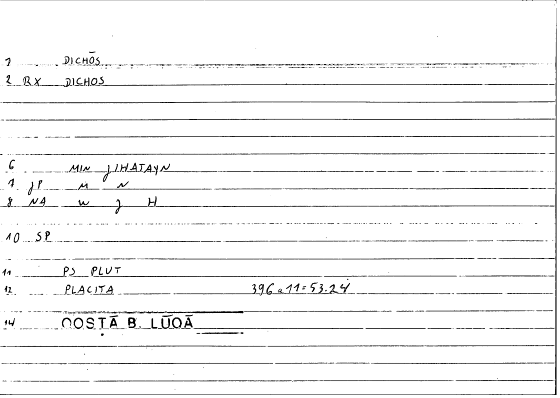 1 DICHŌS
2 RX DICHOS
6 MIN JIHATAYN
7 JP M N
8 NA W J H
10 SP
11 PS PLUT
12 PLACITA 396a11=53.24
14 QOSṬĀ B. LŪQĀ